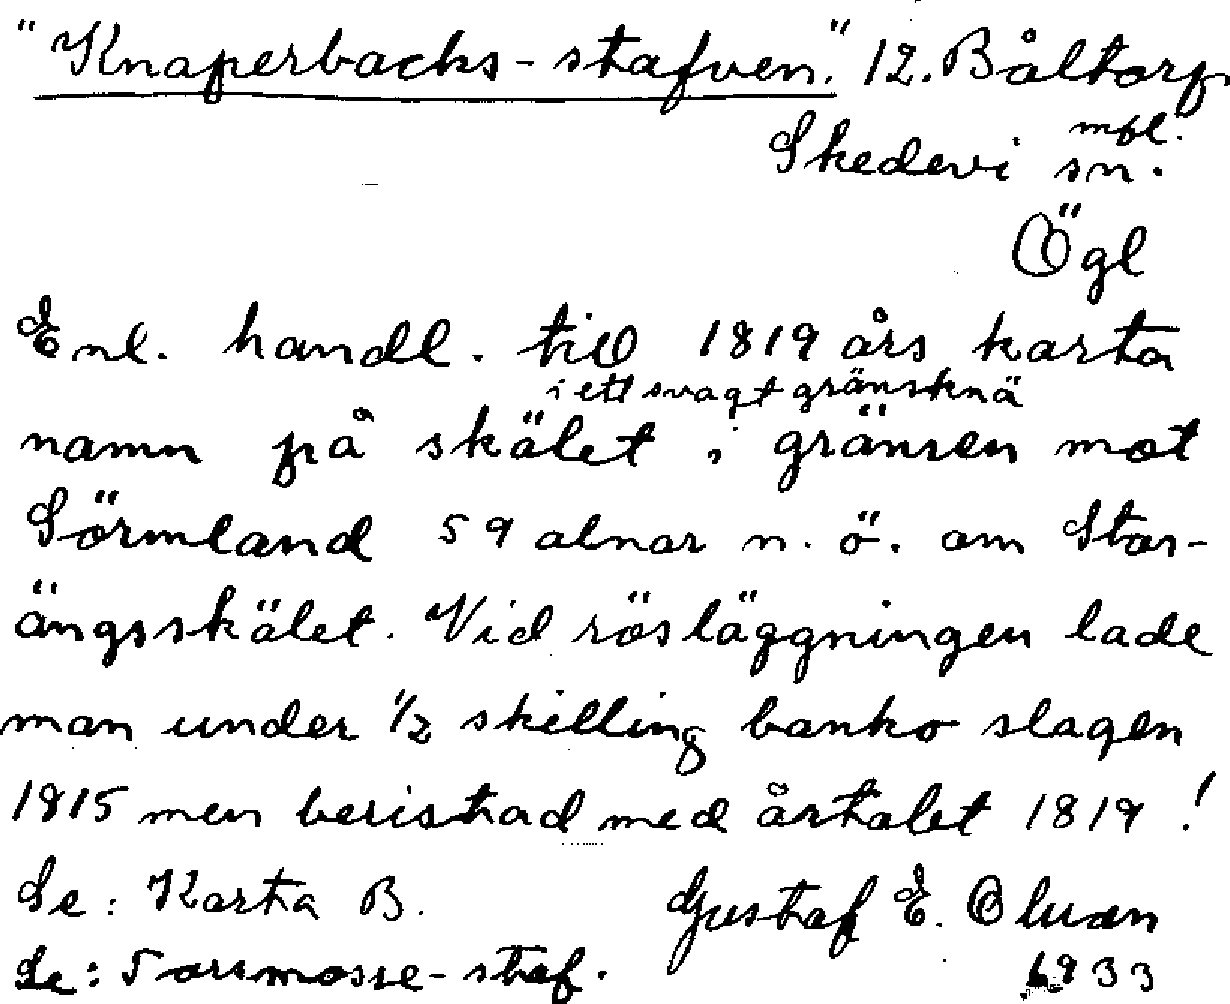 "Knaperbacks-stafven." 12. Båltorp
mfl.
Skedevi sn.
Ögl
Enl. handl. till 1819 års karta
i ett svagt gränsknä
namn på skälet i gränsen mot
Sörmland 59 alnar n.ö. om Stor-
ängsskälet. Vid rösläggningen lade
man under ½ skilling banko slagen
1815 men beristad med årtalet 1819!
Se: Karta B. Gustaf E. Oluan
Se: Torsmosse-staf. 1933